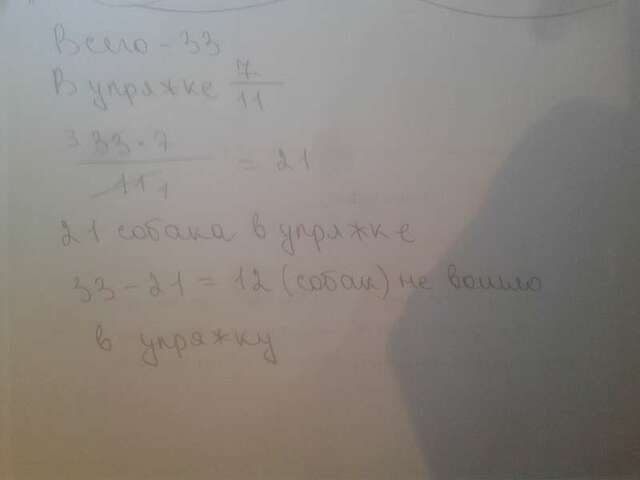 Всего - 33
В упряжке 7/11
3 33 · 7 / 11 1 = 21
21 собака в упряжке
33 - 21 = 12 (собак) не вошло
в упряжку